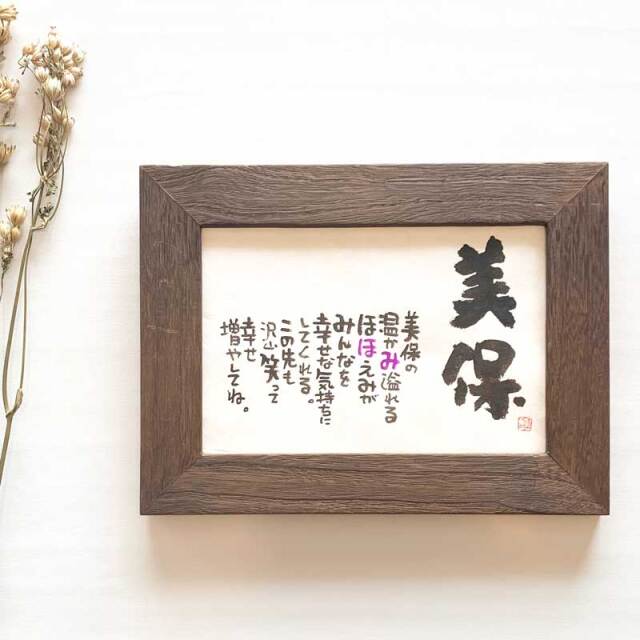 美保
美保の
温かみ溢れる
ほほえみが
みんなを
幸せな気持ちに
してくれる。
この先も
沢山笑って
幸せ
増やしてね。